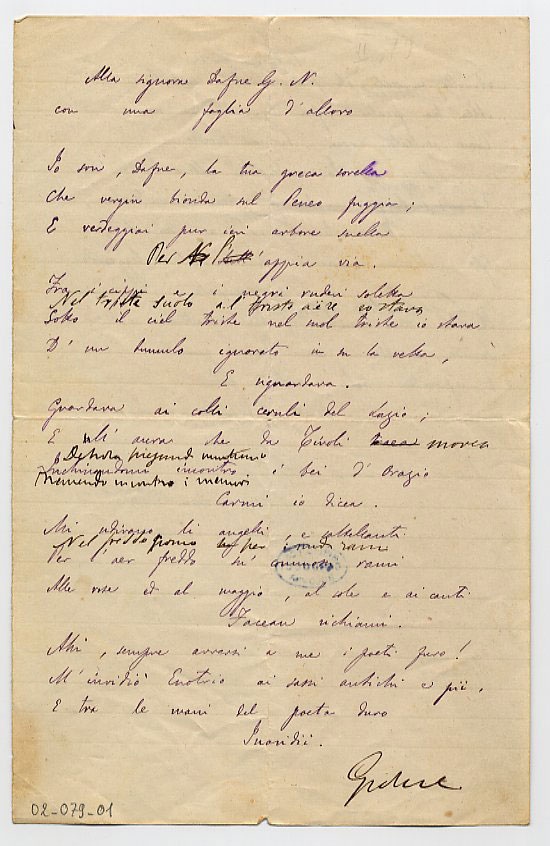 Alla signora Dafne G. N.
con una foglia d'alloro
Io son, Dafne, la tua greca sorella
Che vergin bionda sul Peneo fuggia;
E verdeggiai pur ieri arbore snella
Per l'appia via.
Fra i cippi e i negri ruderi soletta
Nel triste suolo al tristo aëre io stava
Sotto il ciel triste nel suol triste io stava
D'un tumulo ignorato in su la vetta,
E riguardava.
Guardava ai colli ceruli del Lazio;
E all'aura che da Tivoli movea
Debole piegando
Inchinandomi incontro i bei d'Orazio
Tremendo incontro i
Carmi io dicea.
Mi udirono li augelli, e
Nel freddo per i nudi rami
Per l'aer freddo su' commossi rami
Alle rose ed al maggio, al sole e ai canti
Facean richiami.
Ahi, sempre avversi a me i poeti furo!
M'invidiò Enotrio ai sassi antichi e pii,
E tra le mani del poeta duro
Inaridii.
02-079-01